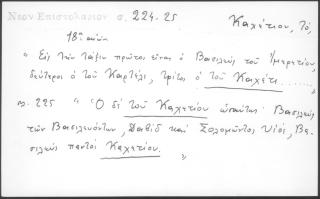 Νεον Επιστολαριον σ. 224-25
Καχέτιον, τό,
18ος αιών
"Εἰς τὴν τάξιν πρῶτος εἶναι ὁ Βασιλεὺς τοῦ Ἰμερετίου,
δεύτερος ὁ τοῦ Καρτέλι, τρίτος ὁ τοῦ Καχέτι......."
σ. 225 "Ὁ δὲ τοῦ Καχετίου ὡσαύτως· Βασιλεὺς
τῶν Βασιλευόντων, Δαβὶδ καὶ Σολομῶντος υἱός, Βα-
σιλεὺς παντὸς Καχετίου.
"